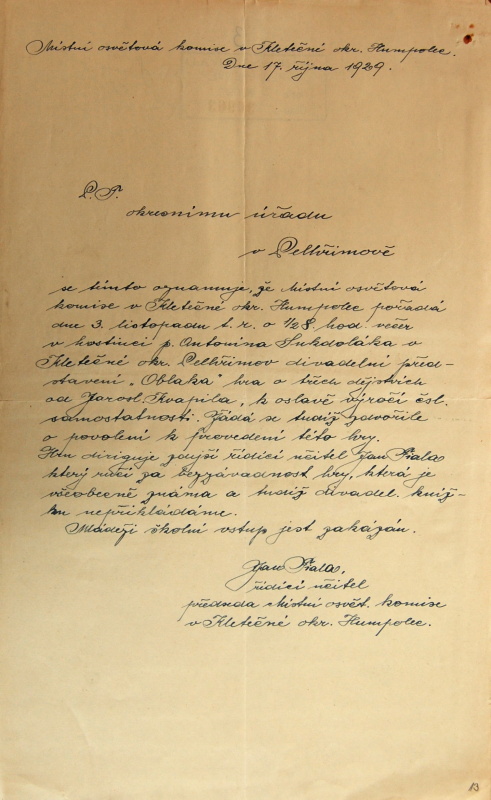 Místní osvětová komise v Kletečné okr. Humpolec.
Dne 17. října 1929.
P. T.
okresnímu úřadu
v Pelhřimově
se tímto oznamuje, že Místní osvětová
komise v Kletečné okr. Humpolec pořádá
dne 3. listopadu t. r. o 1/28. hod. večer
v hostinci p. Antonína Sukdoláka v
Kletečné okr. Pelhřimov divadelní před-
stavení „Oblaka" hra o třech dějstvích
od Jarosl. Kvapila", k oslavě výročí čsl.
samostatnosti. Žádá se tudíž zdvořile
o povolení k provedení této hry.
Hru diriguje zdejší řídící učitel Jan Fiala
který ručí za bezzávadnost hry, která je
všeobecně známa a tudíž divadel. kníž-
ku nepřikládáme.
Mládeži školní vstup jest zakázán.
Jan Fiala,
řídící učitel
předseda Místní osvět. komise
v Kletečné okr. Humpolec.
13